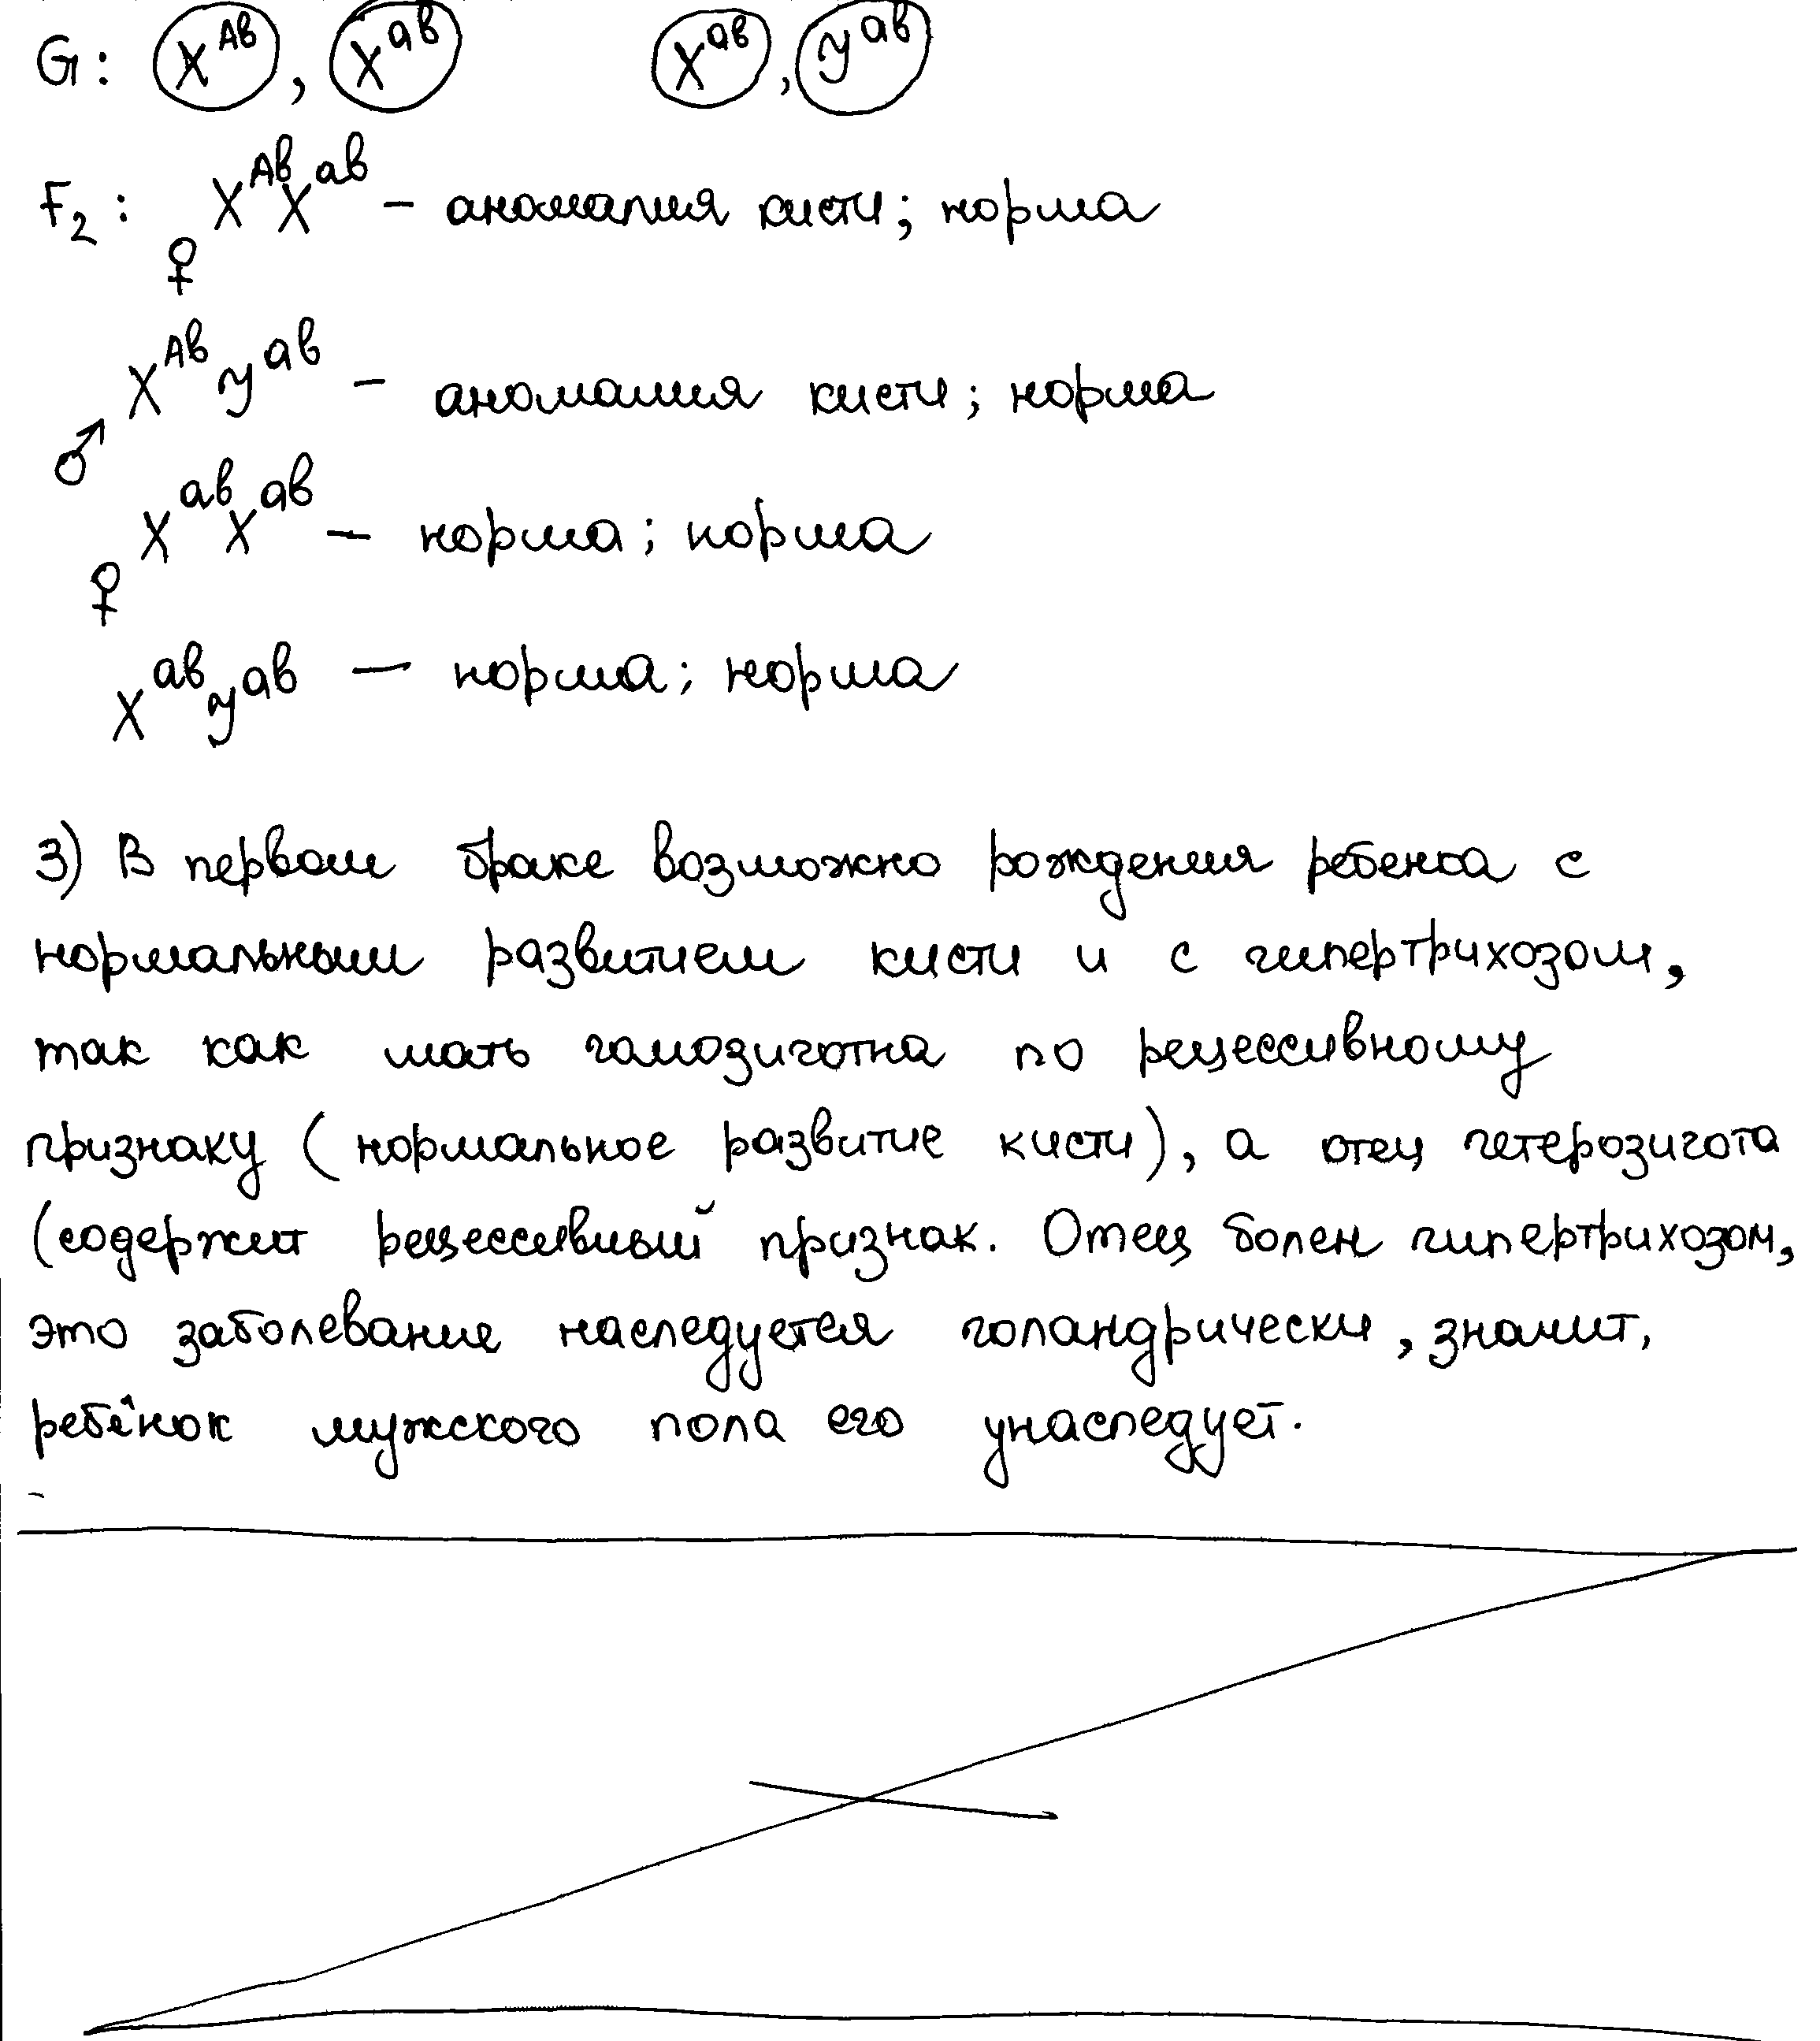 G: X^Ав, X^ав X^ав, У^ав
F₂: ♀ X^Ав X^ав – аномалия кисти; норма
♂ X^Ав У^ав – аномалия кисти; норма
♀ X^ав X^ав – норма; норма
X^ав У^ав – норма; норма
3) В первом браке возможно рождения ребенка с
нормальным развитием кисти и с гипертрихозом,
так как мать гомозиготна по рецессивному
признаку (нормальное развитие кисти), а отец гетерозигота
(содержит рецессивный признак. Отец болен гипертрихозом,
это заболевание наследуется голандрически, значит,
ребёнок мужского пола его унаследует.